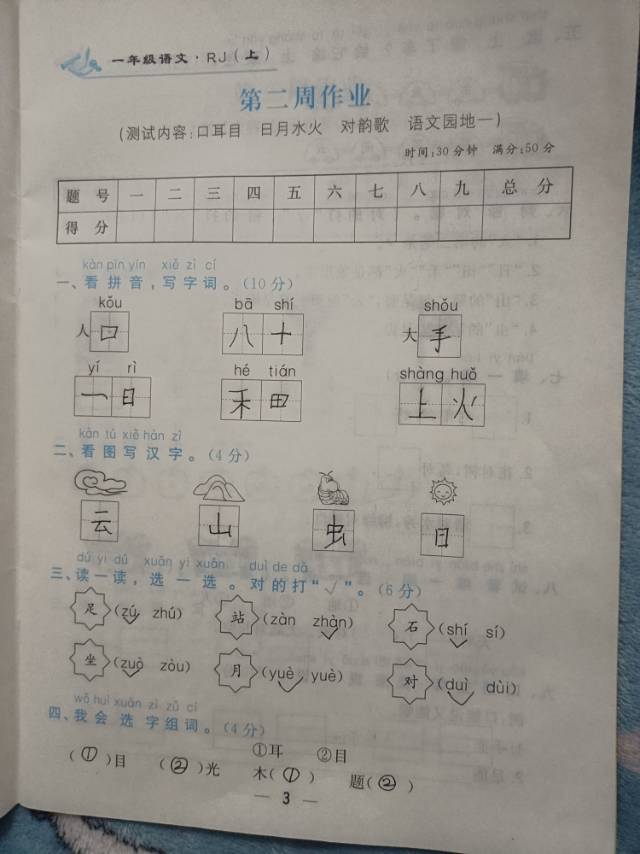 一年级语文·RJ(上)
第二周作业
(测试内容:口耳目 日月水火 对韵歌 语文园地一)
时间:30分钟 满分:50分
题 号 一 二 三 四 五 六 七 八 九 总 分
得 分
kàn pīn yīn xiě zì cí
一、看拼音,写字词。(10分)
kǒu bā shí shǒu
人口 八十 大手
yí rì hé tián shàng huǒ
一日 禾田 上火
kàn tú xiě hàn zì
二、看图写汉字。(4分)
云 山 虫 日
dú yi dú xuǎn yi xuǎn duì de dǎ
三、读一读,选一选。对的打“√”。(6分)
足(zú zhú) 站(zàn zhàn) 石(shí sí)
坐(zuò zòu) 月(yuè yuè) 对(duì dùi)
wǒ huì xuǎn zì zǔ cí
四、我会选字组词。(4分)
①耳 ②目
(①)目 (②)光 木(①) 题(②)
— 3 —